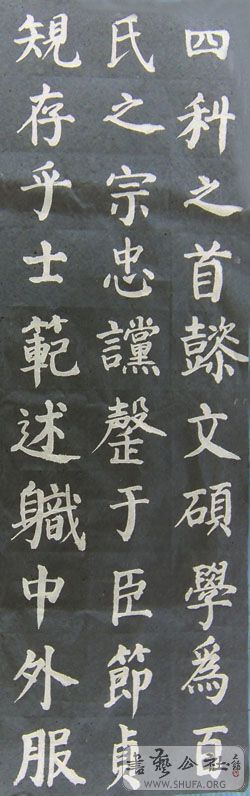 四科之首懿文碩學爲百
氏之宗忠讜罄于臣節貞
䂓存乎士範述軄中外服
書藝公社
WWW.SHUFA.ORG